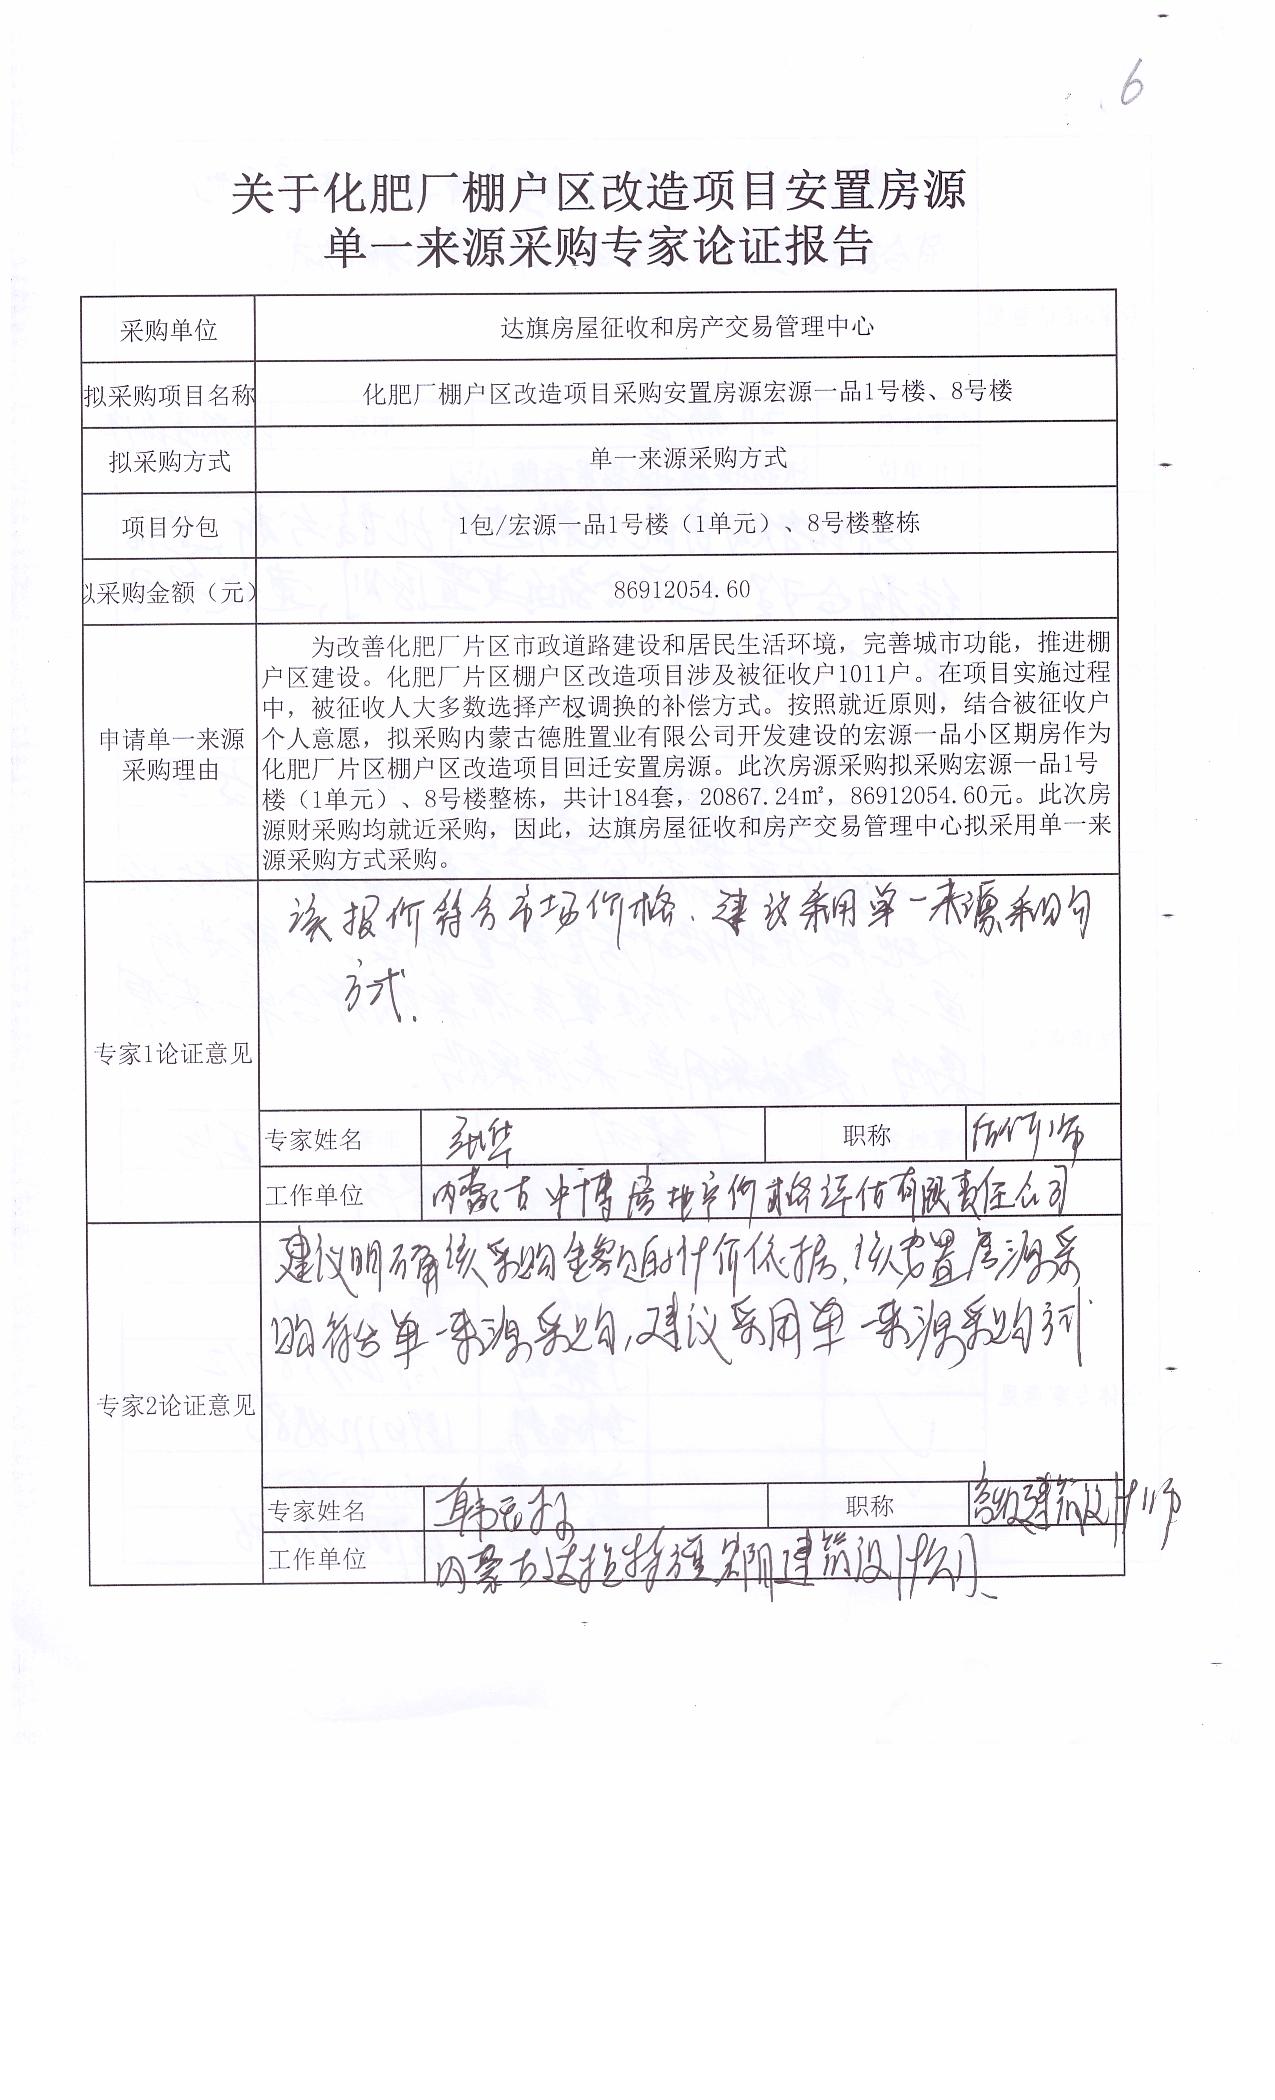 6
关于化肥厂棚户区改造项目安置房源
单一来源采购专家论证报告
采购单位
达旗房屋征收和房产交易管理中心
拟采购项目名称
化肥厂棚户区改造项目采购安置房源宏源一品1号楼、8号楼
拟采购方式
单一来源采购方式
项目分包
1包/宏源一品1号楼（1单元）、8号楼整栋
拟采购金额（元）
86912054.60
申请单一来源
采购理由
为改善化肥厂片区市政道路建设和居民生活环境，完善城市功能，推进棚
户区建设。化肥厂片区棚户区改造项目涉及被征收户1011户。在项目实施过程
中，被征收人大多数选择产权调换的补偿方式。按照就近原则，结合被征收户
个人意愿，拟采购内蒙古德胜置业有限公司开发建设的宏源一品小区期房作为
化肥厂片区棚户区改造项目回迁安置房源。此次房源采购拟采购宏源一品1号
楼（1单元）、8号楼整栋，共计184套，20867.24㎡，86912054.60元。此次房
源财采购均就近采购，因此，达旗房屋征收和房产交易管理中心拟采用单一来
源采购方式采购。
专家1论证意见
该报价符合市场价格，建议采用单一来源采购
方式.
专家姓名
职称
估价师
工作单位
内蒙古中博房地产价格评估有限责任公司
专家2论证意见
建议明确该采购金额的计价依据，该安置房源采
购符合单一来源采购，建议采用单一来源采购方式
专家姓名
职称
高级建筑设计师
工作单位
内蒙古达拉特建筑设计公司